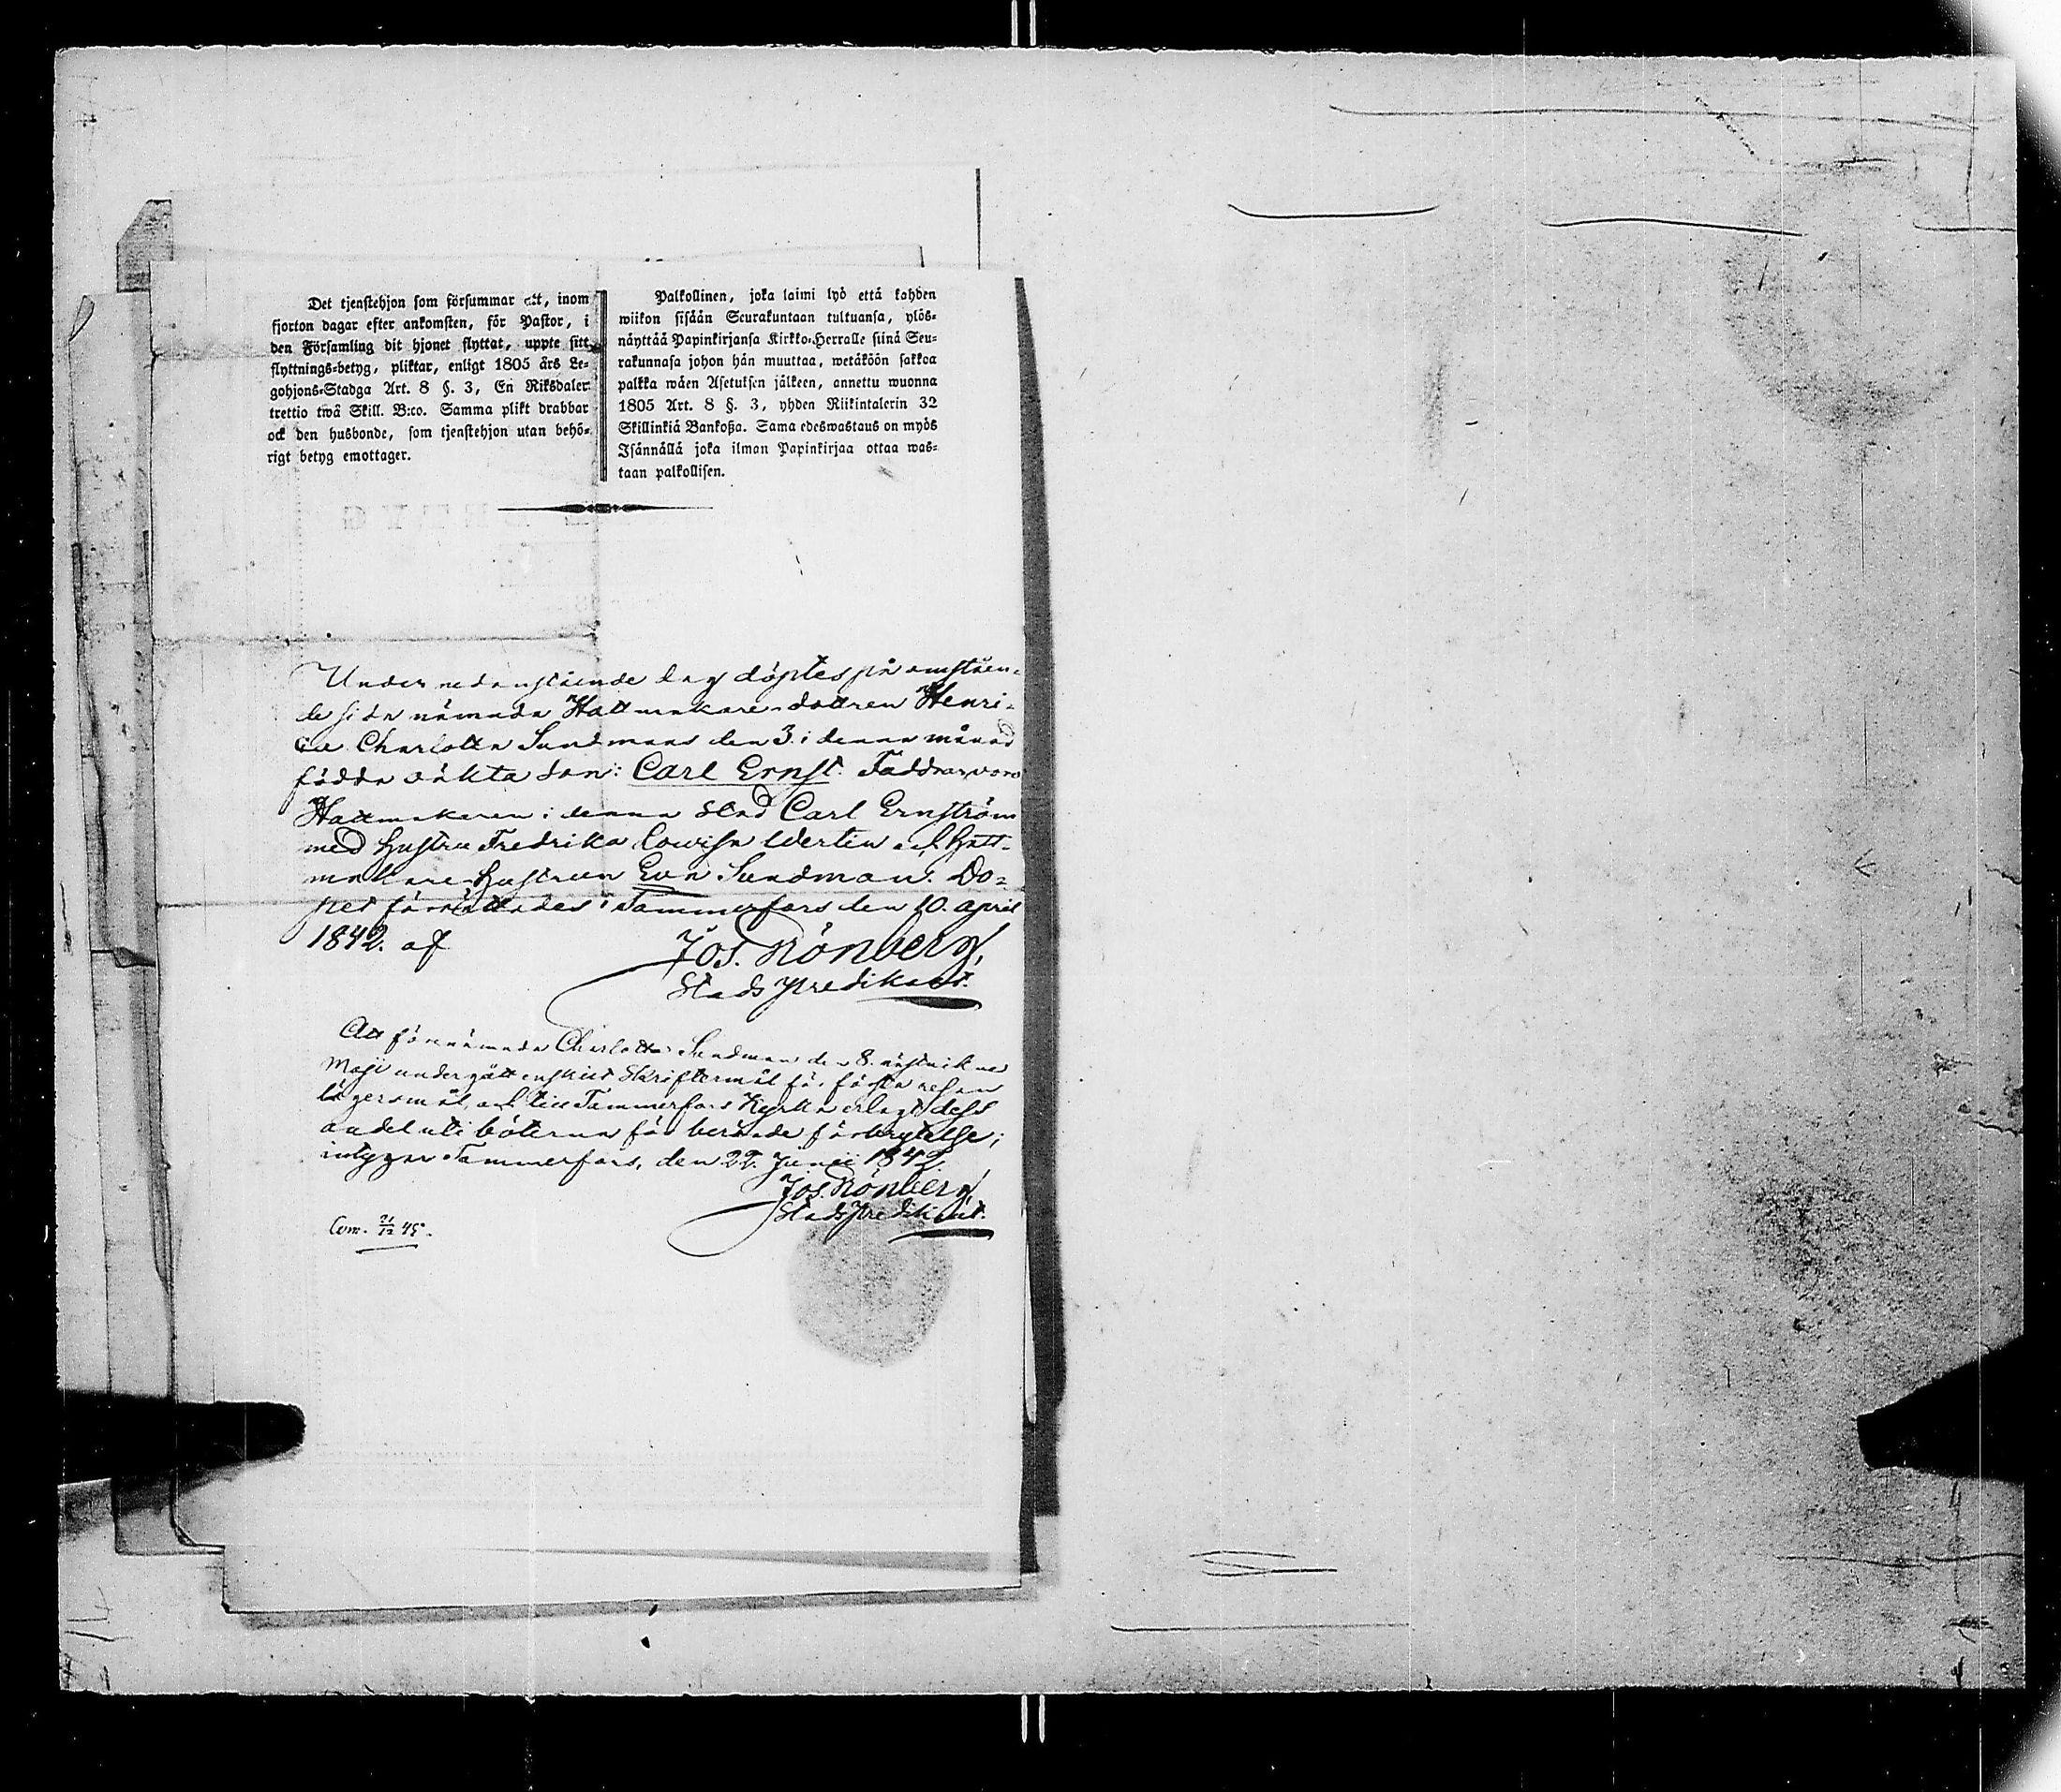 Det tjenstehjon som försummar att, inom
fjorton dagar efter ankomsten, för Pastor, i
den Församling dit hjonet flyttat, uppte sitt
flyttnings-betyg, pliktar, enligt 1805 års Le-
gohjons-Stadga Art. 8 §. 3, En Riksdaler
trettio twå Skill. B:co. Samma plikt drabbar
ock den husbonde, som tjenstehjon utan behö-
rigt betyg emottager.
Palkollinen, joka laimi lyö että kahden
wiikon sisään Seurakuntaan tultuansa, ylös-
näyttää Papinkirjansa Kirkko-Herralle siinä Seu-
rakunnasa johon hän muuttaa, wetäköön sakkoa
palkka wäen Asetuksen jälkeen, annettu wuonna
1805 Art. 8 §. 3, yhden Riikintalerin 32
Skillinkiä Bankoßa. Sama edeswastaus on myös
Isännällä joka ilman Papinkirjaa ottaa was-
taan palkollisen.
Under nedanstående dag döptes på omståen-
de sida nämnda Hattmakare-dottren Henri-
Charlotta Sundmans den 3. i denna månad
födda oäkta son: Carl Ernst. Faddrar voro
Hattmakaren i denna stad Carl Ernström
med hustru Fredrika Lovisa Wertin och Hatt-
makare-hustrun Eva Sundman. Do-
pet förrättades i Tammerfors den 10. april
1842. af
Jos. Grönberg,
Stads Predikant.
Att förenämnda Charlotta Sundman den 8. sistvikne
Maji undergått enskilt Skriftermål för första resan
lägersmål, och till Tammerfors Kyrka erlagt dess
andel uti böterna för berörde förbrytelse;
intygar Tammerfors, den 22. Junii 1842.
Jos. Grönberg
Stads Predikant.
Com. 21/12 45.